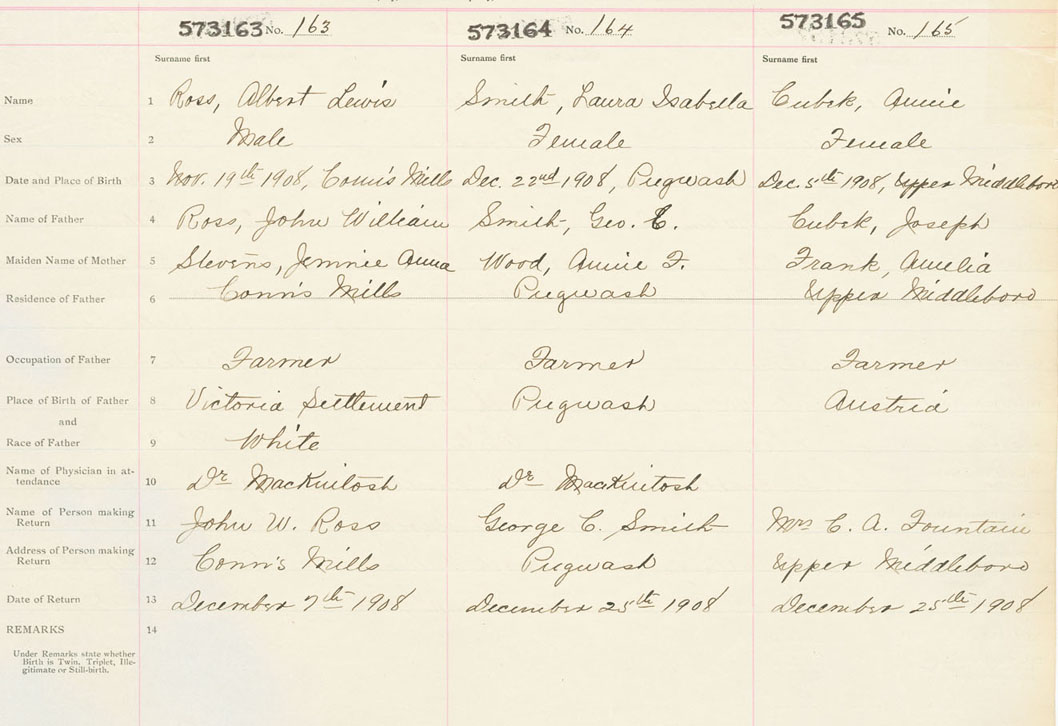 573163 No. 163 573164 No. 164 573165 No. 165
Surname first Surname first Surname first
Name 1 Ross, Albert Lewis Smith, Laura Isabella Cubek, Annie
Sex 2 Male Female Female
Date and Place of Birth 3 Nov. 19th 1908, Conn's Mills Dec. 22nd 1908, Pugwash Dec. 5th 1908, Upper Middleboro
Name of Father 4 Ross, John William Smith, Geo. C. Cubek, Joseph
Maiden Name of Mother 5 Stevens, Jennie Anna Wood, Annie F. Frank, Amelia
Residence of Father 6 Conn's Mills Pugwash Upper Middleboro
Occupation of Father 7 Farmer Farmer Farmer
Place of Birth of Father 8 Victoria Settlement Pugwash Austria
and
Race of Father 9 White
Name of Physician in at-
tendance 10 Dr MacKintosh Dr MacKintosh
Name of Person making
Return 11 John W. Ross George C. Smith Mrs C. A. Fountain
Address of Person making
Return 12 Conn's Mills Pugwash Upper Middleboro
Date of Return 13 December 7th 1908 December 25th 1908 December 25th 1908
REMARKS 14
Under Remarks state whether
Birth is Twin, Triplet, Ille-
gitimate or Still-birth.